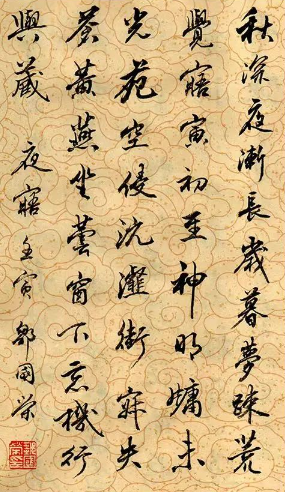 秋深夜漸長歲暮夢踈荒
覺寤寅初至神明慵未
光苑空侵沆瀣街寂失
蒼黃燕坐曇窗下忘機行
與藏 夜寤 壬寅 鄒國榮